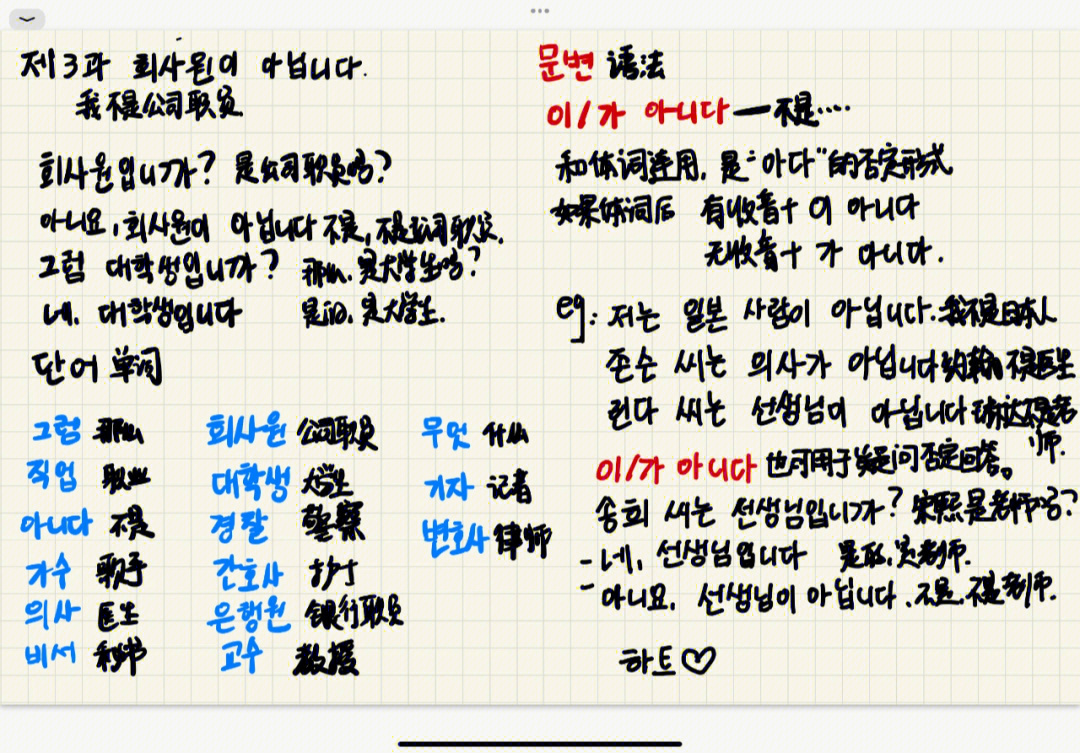 제3과 회사원이 아닙니다.
我不是公司职员.
회사원입니까? 是公司职员吗?
아니요, 회사원이 아닙니다 不是, 不是公司职员.
그럼 대학생입니까? 那么, 是大学生吗?
네. 대학생입니다 是的, 是大学生.
단어 单词
그럼 那么 회사원 公司职员 무엇 什么
직업 职业 대학생 大学生 기자 记者
아니다 不是 경찰 警察 변호사 律师
가수 歌手 간호사 护士
의사 医生 은행원 银行职员
비서 秘书 교수 教授
문변 语法
이/가 아니다 — 不是····
和体词连用, 是"아다"的否定形式
如果体词后 有收音+이 아니다
无收音+가 아니다.
eg: 저는 일본 사람이 아닙니다. 我不是日本人
존슨 씨는 의사가 아닙니다 约翰 不是医生
린다 씨는 선생님이 아닙니다 琳达不是老师.
이/가 아니다 也可用于疑问否定回答。
송희 씨는 선생님입니까? 宋熙是老师吗?
- 네, 선생님입니다 是的, 是老师.
- 아니요, 선생님이 아닙니다. 不是. 不是老师.
하트♡